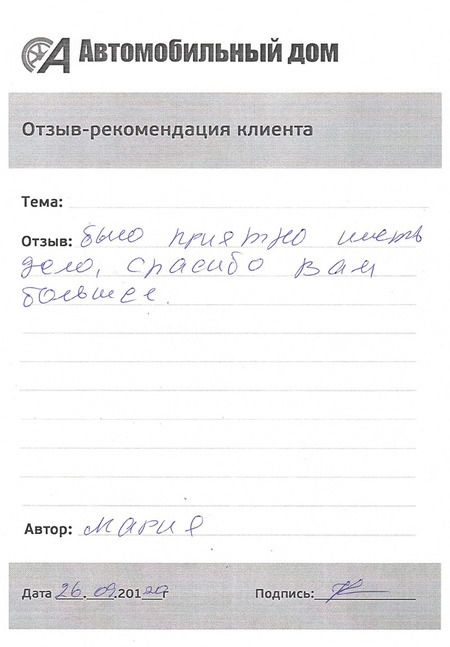 Автомобильный дом
Отзыв-рекомендация клиента
Тема:
Отзыв: было приятно иметь
дело, спасибо Вам
большее.
Автор: Мария
Дата 26.09.20 г Подпись: